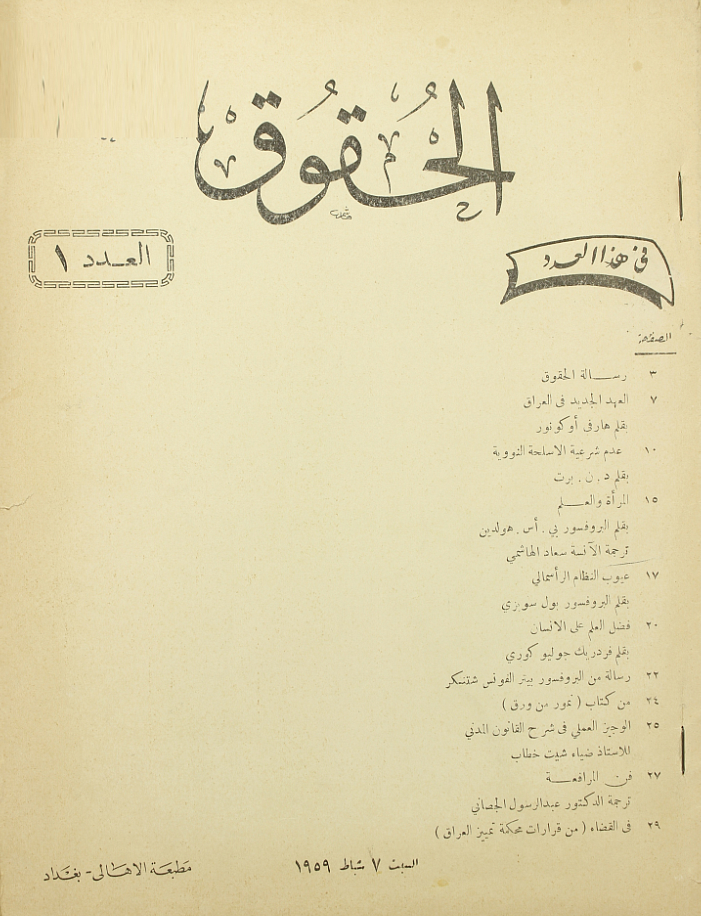 الحقوق
العدد ١
في هذا العدد
الصفحة
٣ رسالة الحقوق
٧ العهد الجديد في العراق
بقلم هارفي أوكونور
١٠ عدم شرعية الاسلحة النووية
بقلم د . ن . برت
١٥ المرأة والعلم
بقلم البروفسور بي . أس . هولدين
ترجمة الآنسة سعاد الهاشمي
١٧ عيوب النظام الرأسمالي
بقلم البروفسور بول سويزي
٢٠ فضل العلم على الانسان
بقلم فردريك جوليو كوري
٢٢ رسالة من البروفسور بيتر الفونس شتنكر
٢٤ من كتاب ( نمور من ورق )
٢٥ الوجيز العملي في شرح القانون المدني
للاستاذ ضياء شيت خطاب
٢٧ فن المرافعة
ترجمة الدكتور عبدالرسول الجصاني
٢٩ في القضاء ( من قرارات محكمة تمييز العراق )
السبت ٧ شباط ١٩٥٩
مطبعة الاهالي - بغداد